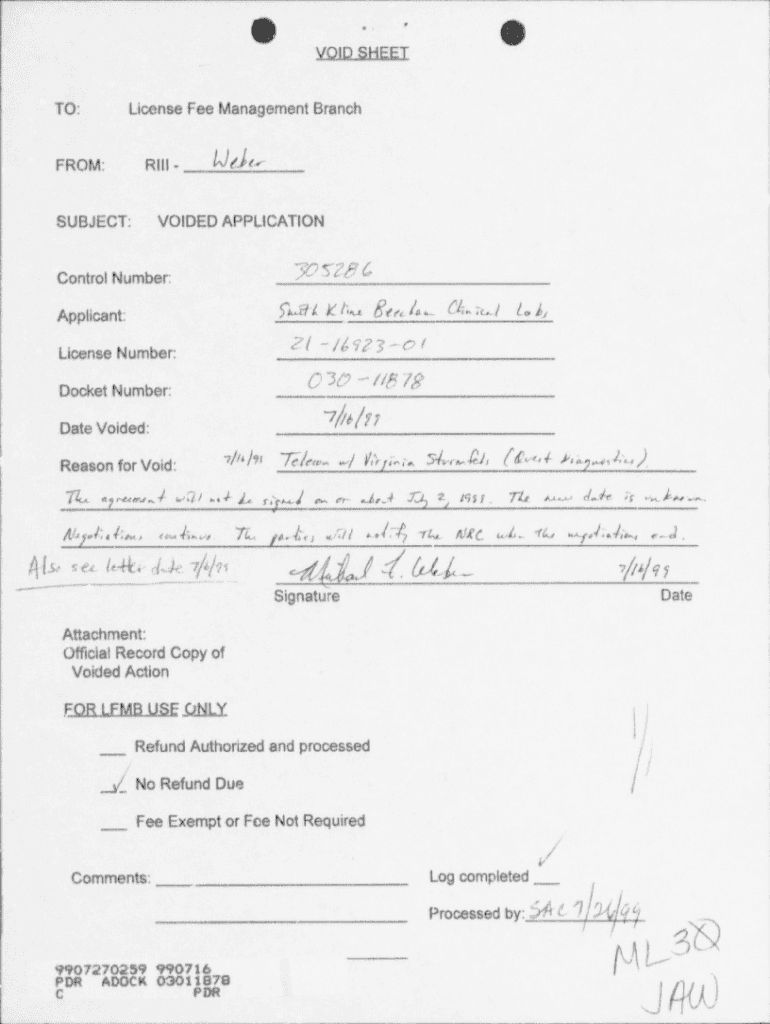 VOID SHEET
TO: License Fee Management Branch
FROM: RIII - Weber
SUBJECT: VOIDED APPLICATION
Control Number: 305286
Applicant: Smith Kline Beecham Clinical Labs
License Number: 21-16923-01
Docket Number: 030-11878
Date Voided: 7/16/99
Reason for Void: 7/16/99 Telecon w/ Virginia Sturmfels (Quest Diagnostics).
The agreement will not be signed on or about July 2, 1999. The new date is unknown.
Negotiations continue. The parties will notify the NRC when the negotiations end.
Also see letter date 7/6/99 Michael F. Weber 7/16/99
Signature Date
Attachment:
Official Record Copy of
Voided Action
FOR LFMB USE ONLY
Refund Authorized and processed
✓ No Refund Due
Fee Exempt or Fee Not Required
Comments: Log completed ✓
Processed by: SAC 7/26/99
ML30
JAW
9907270259 990716
PDR ADOCK 03011878
C PDR